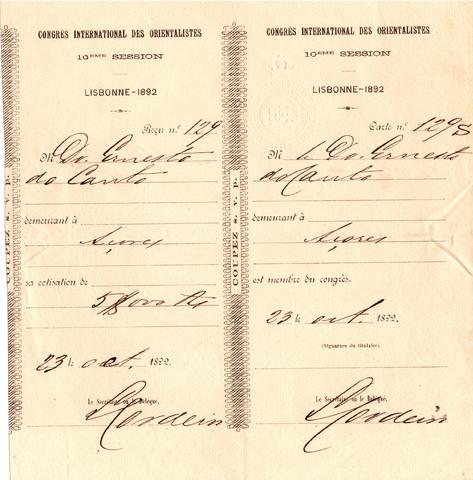 CONGRÈS INTERNATIONAL DES ORIENTALISTES
10ÈME SESSION
LISBONNE-1892
Reçu n.º 129
M Do. Ernesto
do Canto
demeurant à
Açores
sa cotisation de
23 le oct. 1892.
Le Secrétaire ou le Délégué,
Cordeiro
COUPEZ s. v. p.
CONGRÈS INTERNATIONAL DES ORIENTALISTES
10ÈME SESSION
LISBONNE-1892
Carte n.º 129
M Do. Ernesto
do Canto
demeurant à
Açores
est membre du congrès.
23 oct. 1892.
(Signature du titulaire)
Le Secrétaire ou le Délégué,
Cordeiro
COUPEZ s. v. p.